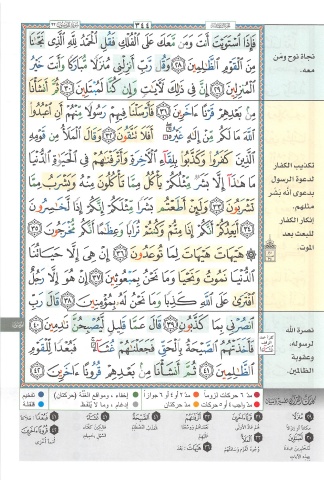 ٣٤٤
فَإِذَا ٱسْتَوَيْتَ أَنتَ وَمَن مَّعَكَ عَلَى ٱلْفُلْكِ فَقُلِ ٱلْحَمْدُ لِلَّهِ ٱلَّذِى نَجَّىٰنَا
مِنَ ٱلْقَوْمِ ٱلظَّٰلِمِينَ ٢٨ وَقُل رَّبِّ أَنزِلْنِى مُنزَلًا مُّبَارَكًا وَأَنتَ خَيْرُ
ٱلْمُنزِلِينَ ٢٩ إِنَّ فِى ذَٰلِكَ لَءَايَٰتٍ وَإِن كُنَّا لَمُبْتَلِينَ ٣٠ ثُمَّ أَنشَأْنَا
مِنۢ بَعْدِهِمْ قَرْنًا ءَاخَرِينَ ٣١ فَأَرْسَلْنَا فِيهِمْ رَسُولًا مِّنْهُمْ أَنِ ٱعْبُدُوا۟
ٱللَّهَ مَا لَكُم مِّنْ إِلَٰهٍ غَيْرُهُۥٓ أَفَلَا تَتَّقُونَ ٣٢ وَقَالَ ٱلْمَلَأُ مِن قَوْمِهِ
ٱلَّذِينَ كَفَرُوا۟ وَكَذَّبُوا۟ بِلِقَآءِ ٱلْءَاخِرَةِ وَأَتْرَفْنَٰهُمْ فِى ٱلْحَيَوٰةِ ٱلدُّنْيَا
مَا هَٰذَآ إِلَّا بَشَرٌ مِّثْلُكُمْ يَأْكُلُ مِمَّا تَأْكُلُونَ مِنْهُ وَيَشْرَبُ مِمَّا
تَشْرَبُونَ ٣٣ وَلَئِنْ أَطَعْتُم بَشَرًا مِّثْلَكُمْ إِنَّكُمْ إِذًا لَّخَٰسِرُونَ
٣٤ أَيَعِدُكُمْ أَنَّكُمْ إِذَا مِتُّمْ وَكُنتُمْ تُرَابًا وَعِظَٰمًا أَنَّكُم مُّخْرَجُونَ ٣٥
۞ هَيْهَاتَ هَيْهَاتَ لِمَا تُوعَدُونَ ٣٦ إِنْ هِىَ إِلَّا حَيَاتُنَا
ٱلدُّنْيَا نَمُوتُ وَنَحْيَا وَمَا نَحْنُ بِمَبْعُوثِينَ ٣٧ إِنْ هُوَ إِلَّا رَجُلٌ
ٱفْتَرَىٰ عَلَى ٱللَّهِ كَذِبًا وَمَا نَحْنُ لَهُۥ بِمُؤْمِنِينَ ٣٨ قَالَ رَبِّ
ٱنصُرْنِى بِمَا كَذَّبُونِ ٣٩ قَالَ عَمَّا قَلِيلٍ لَّيُصْبِحُنَّ نَٰدِمِينَ ٤٠
فَأَخَذَتْهُمُ ٱلصَّيْحَةُ بِٱلْحَقِّ فَجَعَلْنَٰهُمْ غُثَآءً فَبُعْدًا لِّلْقَوْمِ
ٱلظَّٰلِمِينَ ٤١ ثُمَّ أَنشَأْنَا مِنۢ بَعْدِهِمْ قُرُونًا ءَاخَرِينَ ٤٢
نجاة نوح ومن
معه.
تكذيب الكفار
لدعوة الرسول
بدعوى أنه بشر
مثلهم.
إنكار الكفار
للبعث بعد
الموت.
نصرة الله
لرسوله،
وعقوبة
الظالمين.
مد ٦ حركات لزوماً
مد ٢ أو ٤ أو ٦ جوازاً
إخفاء، ومواقع الغنّة (حركتان)
تفخيم
مد واجب ٤ أو ٥ حركات
مد حركتان
إدغام، وما لا يُلفظ
قلقلة